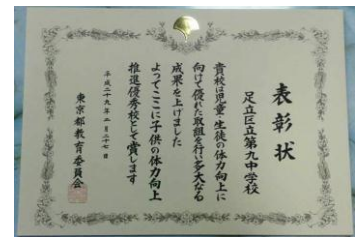 表彰状
足立区立第九中学校
貴校は児童・生徒の体力向上に
向けて優れた取組を行い多大なる
成果を上げました
よってここに子供の体力向上
推進優秀校として賞します
平成二十九年二月二十七日
東京都教育委員会